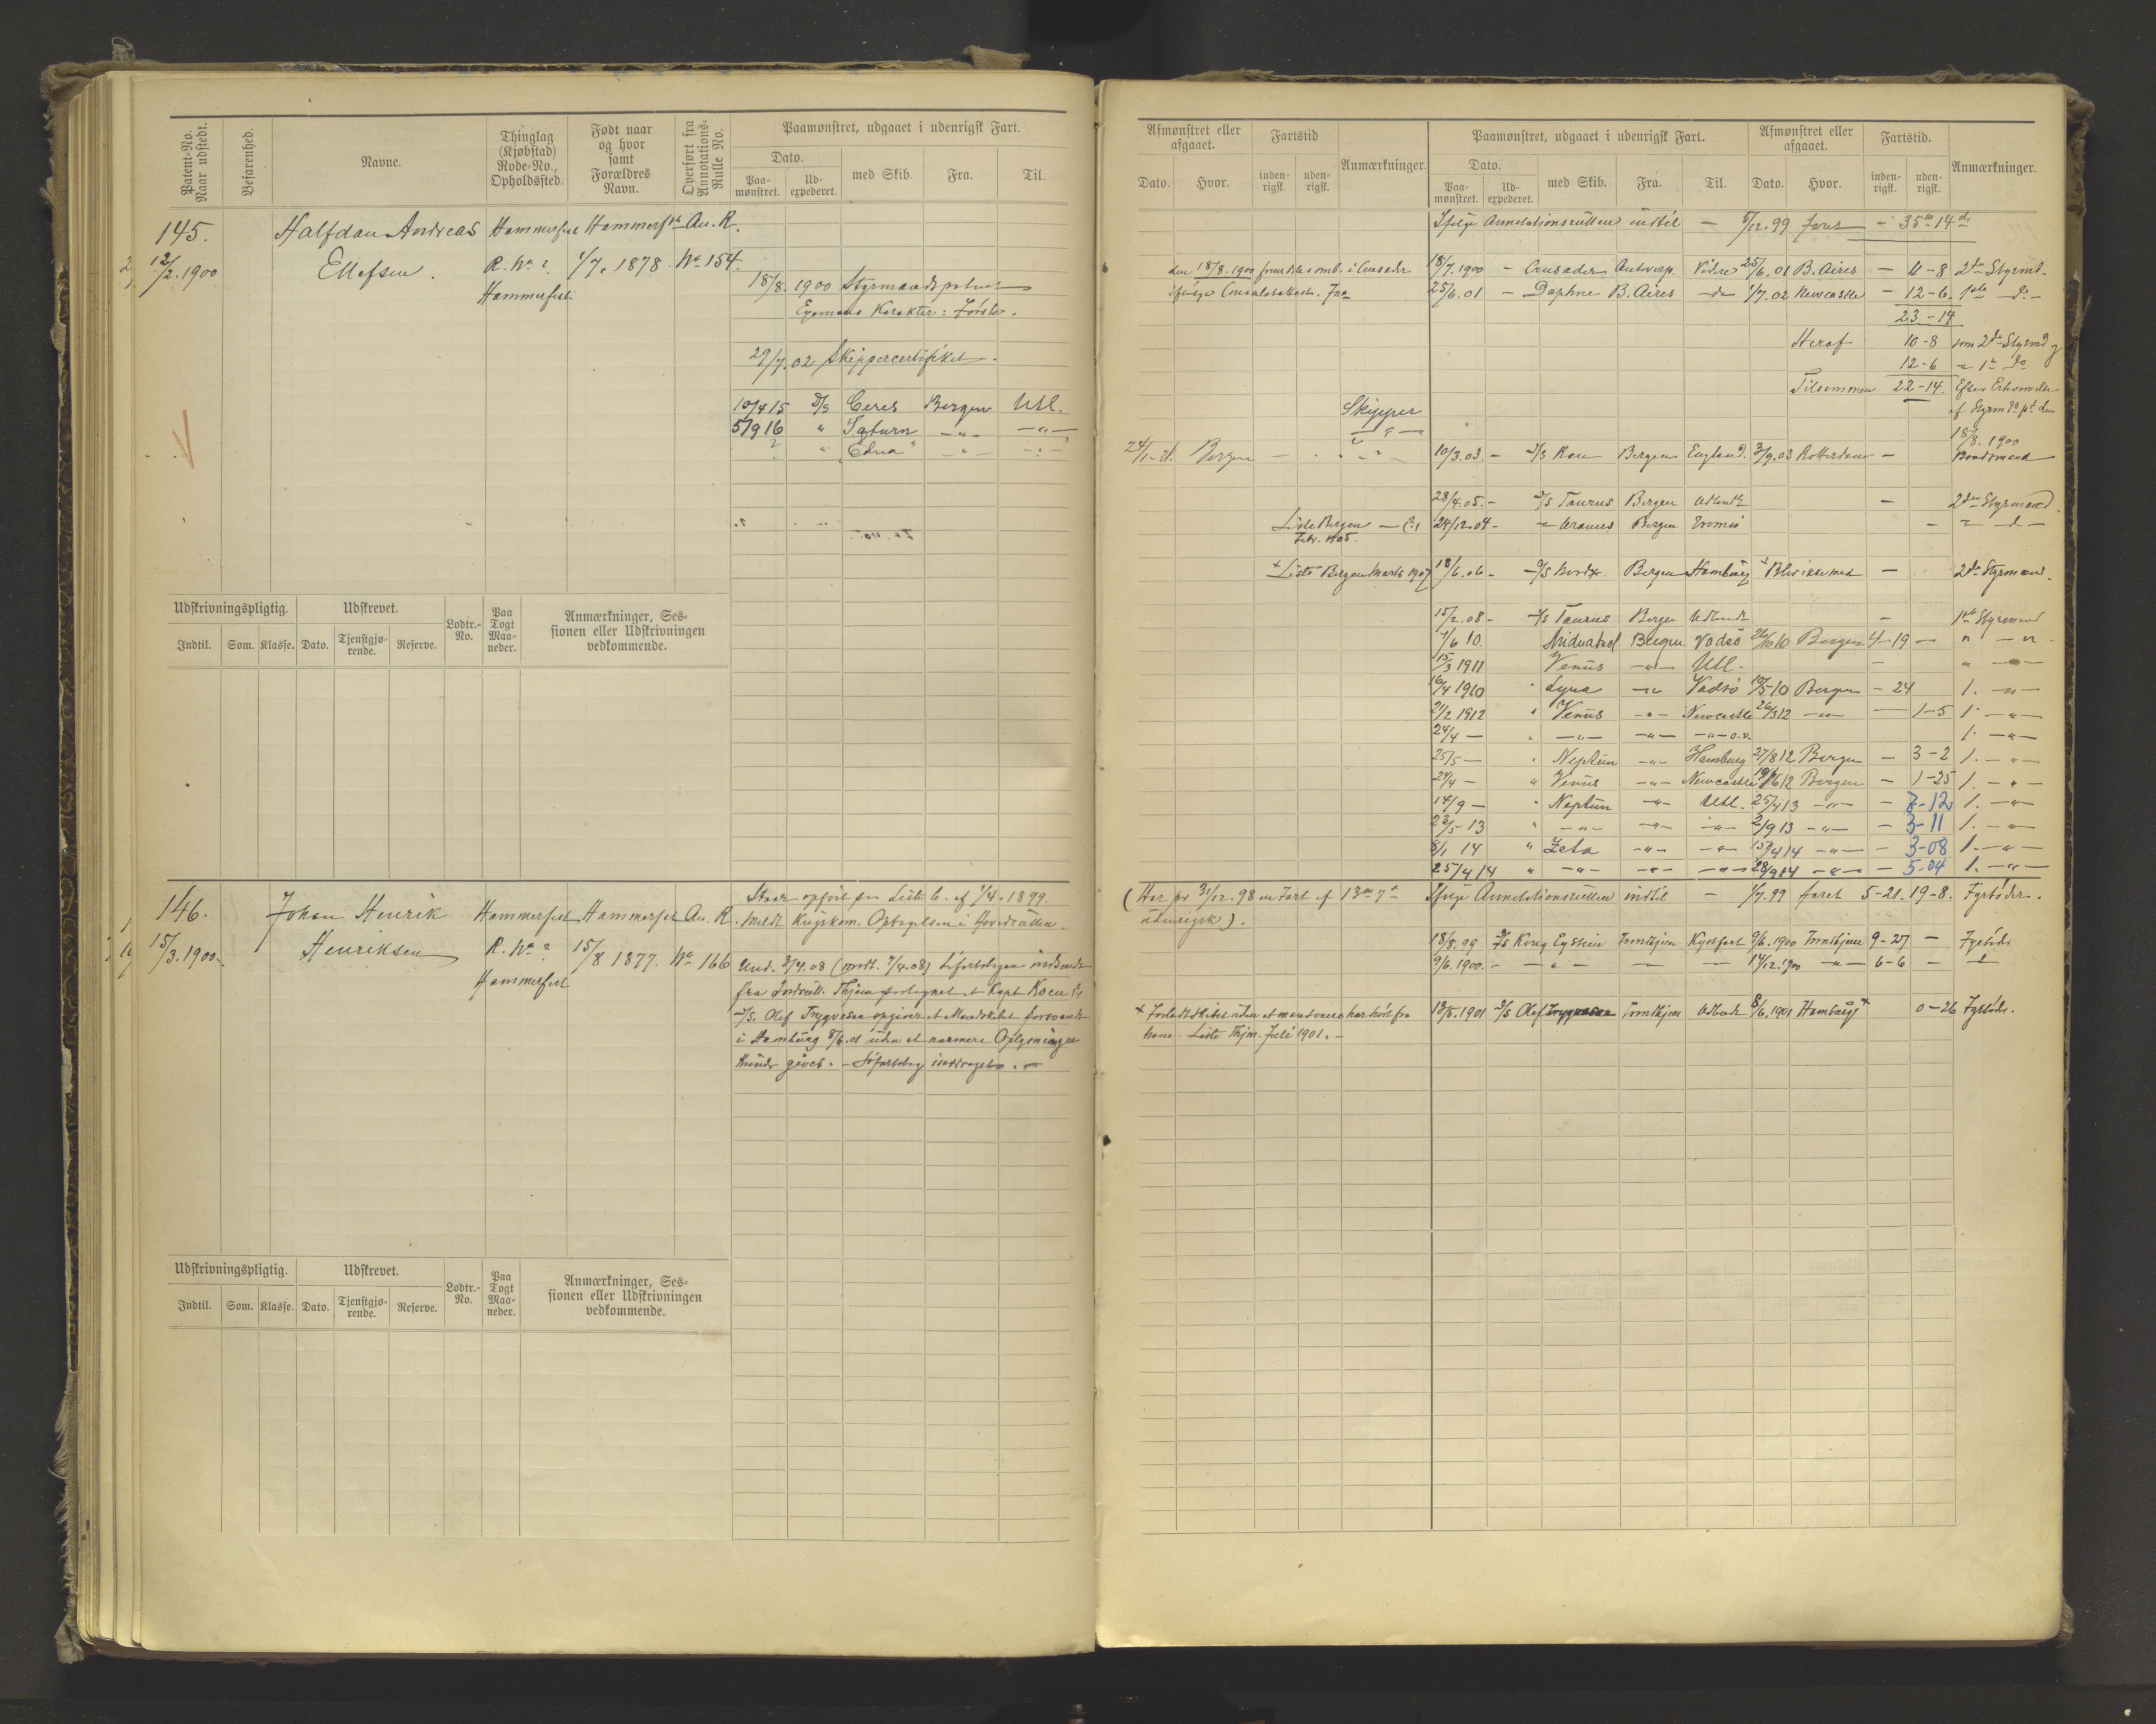 Patent-No. Naar udstedt.
Befarenhed.
Navne.
Thinglag (Kjøbstad) Rode-No., Opholdssted.
Født naar og hvor samt Forældres Navn.
Overført fra Annotations-Rulle No.
Paamønstret, udgaaet i udenrigsk Fart.
Dato.
Paa-mønstret. Ud-expederet. med Skib. Fra. Til.
145. Halfdan Andreas Hammerfest Hammerfest An. R.
12/2. 1900 Ellefsen. R. No ? 1/7. 1878. No 154.
Hammerfest
18/8. 1900 Styrmandspatent
Examens Karakter: Første.
29/7. 02 Skippercertifikat.
10/4 15 D/S Ceres Bergen Udl.
5/9 16 " Saturn -"- -"-
? " "Edna" -"- -"-
Udskrivningspligtig. Udskrevet. Lodtr.-No. Paa Togt Maa-neder. Anmærkninger, Ses-sionen eller Udskrivningen vedkommende.
Indtil. Som. Klasse. Dato. Tjenstgjø-rende. Reserve.
146. Johan Henrik Hammerfest Hammerfest An. R.
15/3. 1900. Henriksen R. No ? 15/8 1877. No 166
Hammerfest
Staar opført fra Liste C. af 1/4. 1899.
Und. 3/4. 08 (modt. 7/4. 08) Søfartsbogen indsendt
fra Indrull. Thjem
D/S. Olaf Trygvesen opgiver at Mandskabet
i Hamburg 8/6. 01 uden at nærmere Oplysninger
kunde gives. - Søfartsbog inddraget. -
Udskrivningspligtig. Udskrevet. Lodtr.-No. Paa Togt Maa-neder. Anmærkninger, Ses-sionen eller Udskrivningen vedkommende.
Indtil. Som. Klasse. Dato. Tjenstgjø-rende. Reserve.
Afmønstret eller afgaaet. Fartstid Anmærkninger. Paamønstret, udgaaet i udenrigsk Fart. Afmønstret eller afgaaet. Fartstid. Anmærkninger.
Dato. Hvor. inden-rigsk. uden-rigsk. Dato. Paa-mønstret. Ud-expederet. med Skib. Fra. Til. Dato. Hvor. inden-rigsk. uden-rigsk.
Ifølge Annotationsrullen indtil - 5/12. 99 faret - 35 m 14 d
18/7. 1900 - Crusader Antwerp. Videre 25/6. 01 B. Aires - 10-8 2den Styrmd.
25/6. 01 - Daphne B. Aires -do 1/7. 02 Newcastle - 12-6. 1ste do -
23-14
Heraf 10-8 som 2den Styrmd og
12-6 " 1ste do
Tilsammen 22-14. Efter Erhvervelse
af Styrmds pt. den
18/8. 1900
Skipper
-"-
24/1-21. Bergen - -"- 10/3. 03. - D/S Ran Bergen England. 3/9. 03 Rotterdam - Baadsmand
28/4. 05. - D/S Taurus Bergen Udlandt - 2den Styrmand.
Liste Bergen - 24/12. 04 - " Uranus Bergen Tromsø - " - d -
Febr. 1905.
+ Liste Bergen Marts 1907 18/6. 06 - D/S Bergen Hamburg + Blev ikke med - 2den Styrmand.
15/2. 08 - D/S Taurus Bergen Udlandt - 1ste Styrmand
7/6 10. Midnatsol Bergen. Vadsø 26/10 10 Bergen 4-19 - " - "
15/3 1911 Venus -"- Udl. - " -"-
16/4 1910 " Lyra -"- Vadsø 10/5 10 Bergen - 24 1. -"-
21/2 1912 " Venus -"- Newcastle 26/3 12 -"- - 1-5 1. -"-
24/4 - " -"- -"- -"- o.v. 1. -"-
25/5 - " Neptun -"- Hamburg 27/8 12 Bergen - 3-2 1. -"-
24/4 - " Venus -"- Newcastle 19/6 12 Bergen - 1-25 1. -"-
14/9 - " Neptun -"- Udl. 25/4 13 -"- - 7-12 1. -"-
23/5 - 13 " -"- -"- -"- 2/9 13 -"- - 3-11 1. -"-
8/1 14 " Zeta -"- -"- 15/4 14 -"- - 3-08 1. -"-
25/4 14 " -"- -"- -"- 28/9 14 -"- - 5-04 1. -"-
(Har pr 31/12. 98 en Fart af 13 m 7 d Ifølge Annotationsrullen indtil - 1/7. 99 faret 5-21. 19-8. Fyrbøder.
udenrigsk).
18/8. 99 D/S Kong Eystein Trondhjem Kystfart 9/6. 1900 Trondhjem 9-27 - Fyrbøder
9/6. 1900. - -"- - - 14/12. 1900 -"- 6-6 -
+ Forladt Skibet uden at man senere har hørt fra 13/5. 1901 D/S Olaf Trygvesen Trondhjem Udlandt 8/6. 1901 Hamburg + 0-26 Fyrbøder.
ham. Liste Thjm. Juli 1901. -